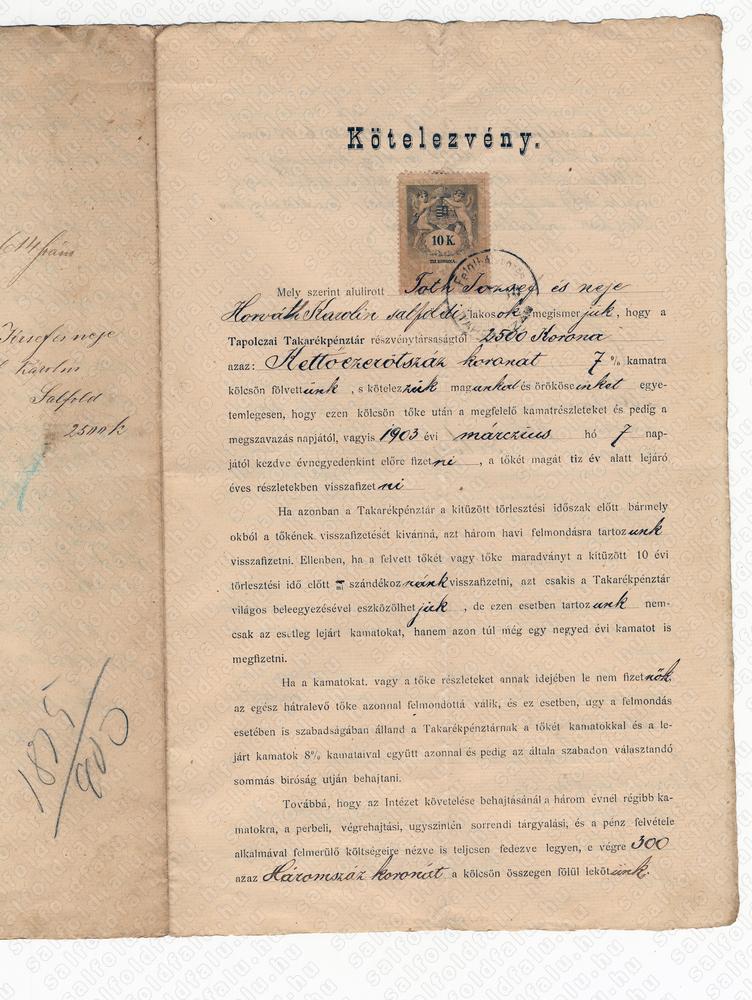 neje
Salföld
2500 k
1815/900
Kötelezvény.
10 K.
Mely szerint alulirott Tóth József és neje
Horváth Karolin salföldi lakosok megismerjük, hogy a
Tapolczai Takarékpénztár részvénytársaságtól 2500 Korona
azaz: Kettőezerötszáz koronát 7 % kamatra
kölcsön fölvettünk , s kötelezzük magunkat és örököseinket egye-
temlegesen, hogy ezen kölcsön tőke után a megfelelő kamatrészleteket és pedig a
megszavazás napjától, vagyis 1903 évi márczius hó 7 nap-
jától kezdve évnegyedenkint előre fizetni , a tőkét magát tiz év alatt lejáró
éves részletekben visszafizetni
Ha azonban a Takarékpénztár a kitűzött törlesztési időszak előtt bármely
okból a tőkének visszafizetését kivánná, azt három havi felmondásra tartozunk
visszafizetni. Ellenben, ha a felvett tőkét vagy tőke maradványt a kitűzött 10 évi
törlesztési idő előtt szándékoznánk visszafizetni, azt csakis a Takarékpénztár
világos beleegyezésével eszközölhetjük , de ezen esetben tartozunk nem-
csak az esetleg lejárt kamatokat, hanem azon túl még egy negyed évi kamatot is
megfizetni.
Ha a kamatokat, vagy a tőke részleteket annak idejében le nem fizetnők,
az egész hátralevő tőke azonnal felmondottá válik, és ez esetben, ugy a felmondás
esetében is szabadságában álland a Takarékpénztárnak a tőkét kamatokkal és a le-
járt kamatok 8% kamataival együtt azonnal és pedig az általa szabadon választandó
sommás biróság utján behajtani.
Továbbá, hogy az Intézet követelése behajtásánál a három évnél régibb ka-
matokra, a perbeli, végrehajtási, ugyszintén sorrendi tárgyalási, és a pénz felvétele
alkalmával felmerülő költségeire nézve is teljesen fedezve legyen, e végre 300
azaz Háromszáz koronát a kölcsön összegen fölül lekötünk.